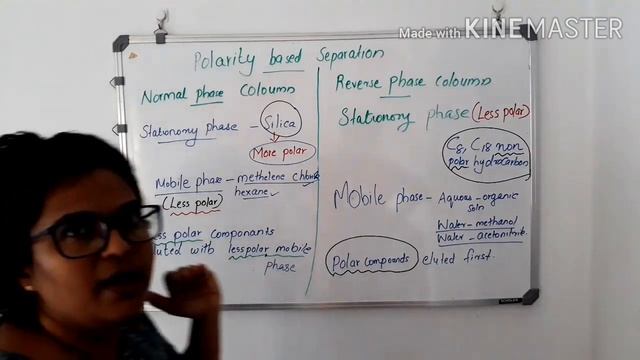 Made with KINEMASTER
Polarity based Separation
Normal phase Coloumn
Stationony phase - Silica
More polar
Mobile phase - methelene chloride
hexane
(Less polar)
polar componants
with less polar mobile
phase
Reverse phase coloumn
Stationony phase (Less polar)
C8, C18 non
polar hydrocarbon
Mobile phase - Aquous - organic
soln
Water - methanol
Water - acetonitrile.
Polar compounds eluted first.